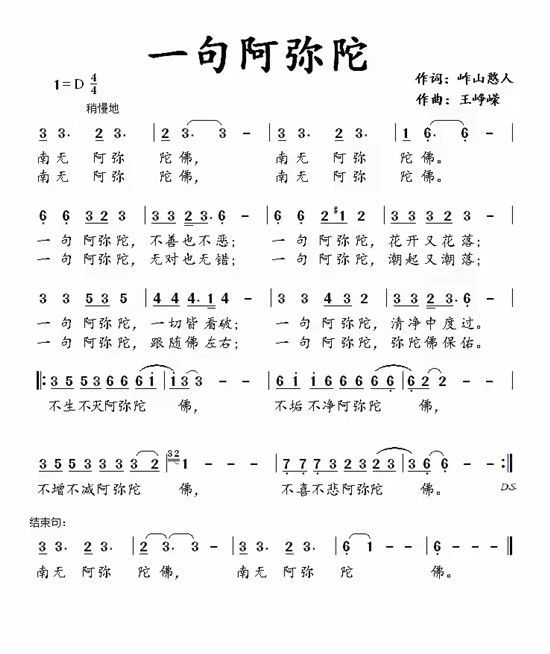 一句阿弥陀
1=D 4/4
作词：岞山憨人
作曲：王峥嵘
稍慢地
3 3· 2 3· | 2 3· 3 3 - | 3 3· 2 3· | 1 6· 6 - |
南无 阿弥 陀佛， 南无 阿弥 陀佛。
南无 阿弥 陀佛， 南无 阿弥 陀佛。
6 6 3 2 3 | 3 3 2 3· 6 - | 6 6 2 #1 2 | 3 3 3 2 3 - |
一句 阿弥陀， 不善也不恶； 一句 阿弥陀， 花开又花落；
一句 阿弥陀， 无对也无错； 一句 阿弥陀， 潮起又潮落；
3 3 5 3 5 | 4 4 4· 1 4 - | 3 3 4 3 2 | 3 3 2 3· 6 - |
一句 阿弥陀， 一切皆看破； 一句 阿弥陀， 清净中度过。
一句 阿弥陀， 跟随佛左右； 一句 阿弥陀， 弥陀佛保佑。
‖: 3 5 5 3 6 6 6 6 1 | 1 3 3 - - | 6 1 6 1 6 6 6 6 6 | 6 2 2 - - |
不生不灭阿弥陀 佛， 不垢不净阿弥陀 佛，
3 5 5 3 3 3 3 3 2 | 32 1 - - - | 7 7 7 7 3 2 3 2 3 | 3 6 6 - - :‖
不增不减阿弥陀 佛， 不喜不悲阿弥陀 佛。 D.S.
结束句：
3 3· 2 3· | 2 3· 3 - | 3 3· 2 3· | 6 1 - - | 6 - - - ‖
南无 阿弥 陀佛， 南无 阿弥 陀 佛。